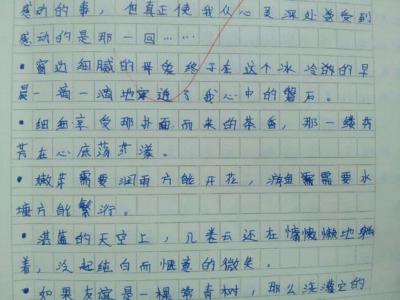 感动的事，但真正使我从心灵深处感受到
感动的是那一回……
·窗边细腻的母爱终于在这个冰冷的早
晨一滴一滴地穿透了我心中的磐石。
·细细享受那扑面而来的茶香，那一缕芬
芳在心底荡荡漾漾。
·嫩芽需要润雨方能开花，游鱼需要水
塘方能繁衍。
·湛蓝的天空上，几卷云还在慵懒地躺
着，泛起纯白而惬意的微笑。
·如果友谊是一棵常青树，那么浇灌它的